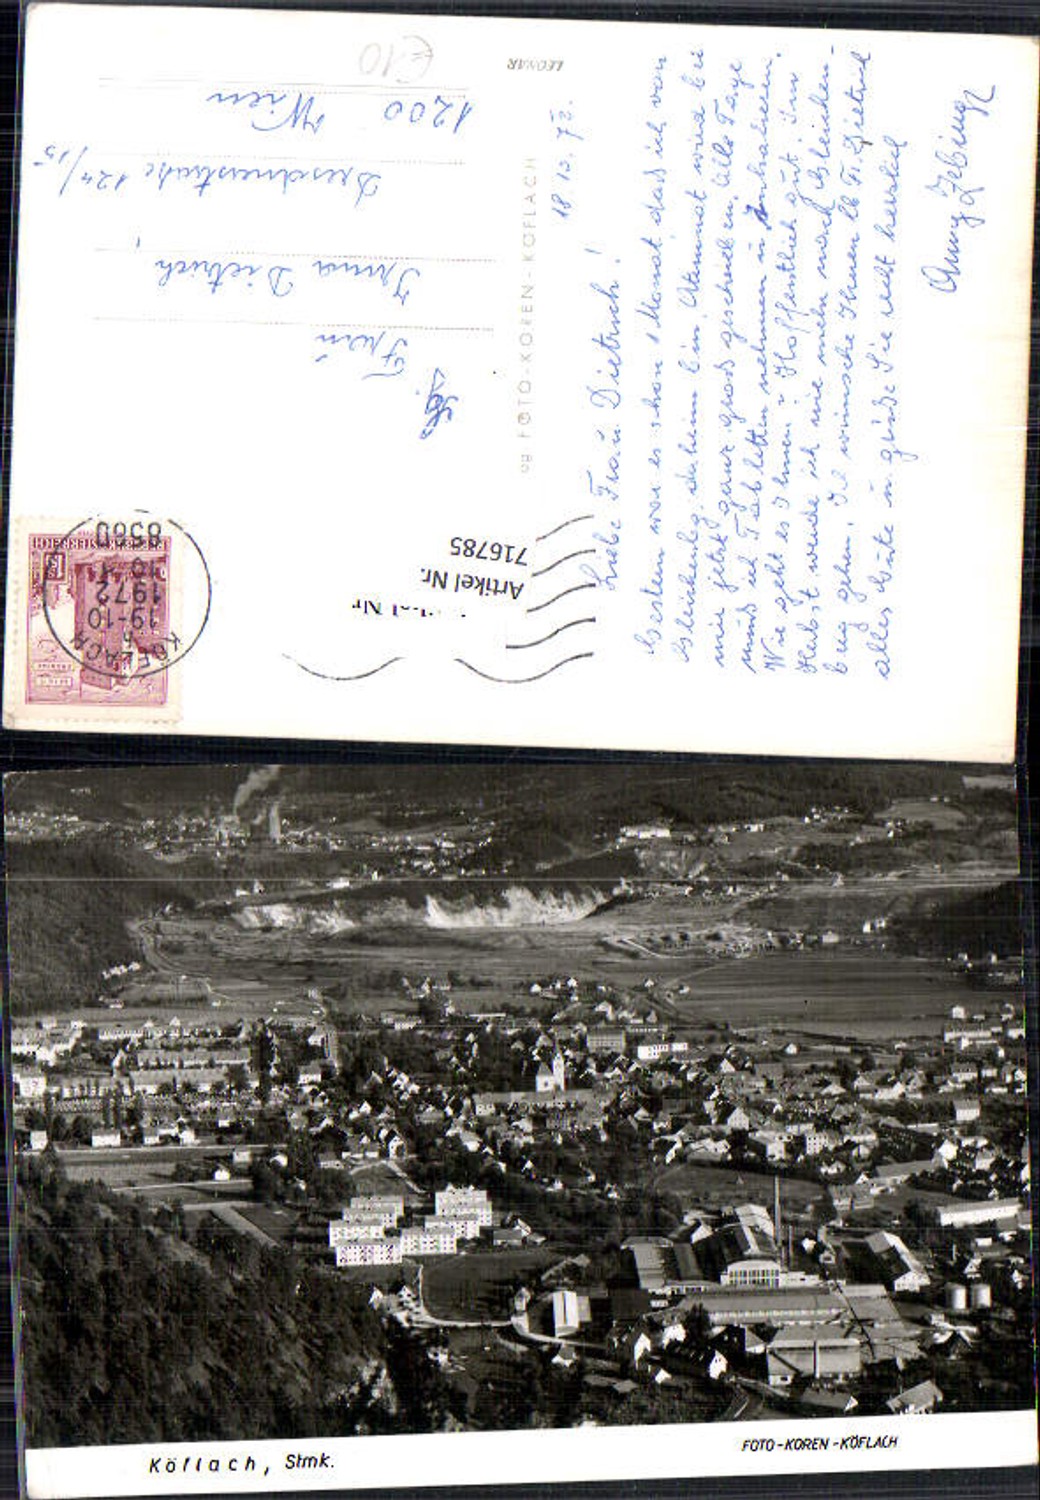 €10
LEOMAR
og FOTO-KOREN-KÖFLACH
Artikel Nr.
716785
KÖFLACH
19-10
1972
8580
REPUBLIK ÖSTERREICH
Frau
Irma Dietrich
Dresdnerstraße 124/15
1200 Wien
18.10.72.
Liebe Frau Dietrich!
Gestern war es schon 1 Monat daß ich von
Gleichenbg. daheim bin, Atemnot wird bei
mir jetzt ganz groß geschrieben. Alle Tage
muß ich Tabletten nehmen u. Inhalieren.
Wie geht es Ihnen? Hoffentlich gut. Im
Herbst werde ich nie mehr nach Gleichen-
berg gehen. Ich wünsche Ihnen lb Fr. Dietrich
alles Gute u. grüße Sie recht herzlich
Köflach, Stmk.
FOTO-KOREN-KÖFLACH